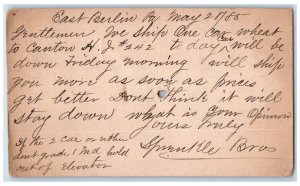 East Berlin Pa May 21/85
Gentlemen We Ship One Car wheat
to Canton H. J. #242 to day, will be
down Friday morning will ship
you more as soon as prices
get better Dont think it will
stay down what is your opinion
yours truly
Sprenkle Bros
If the 2 car or either
dont grade 1 Md. hold
out of Elevator